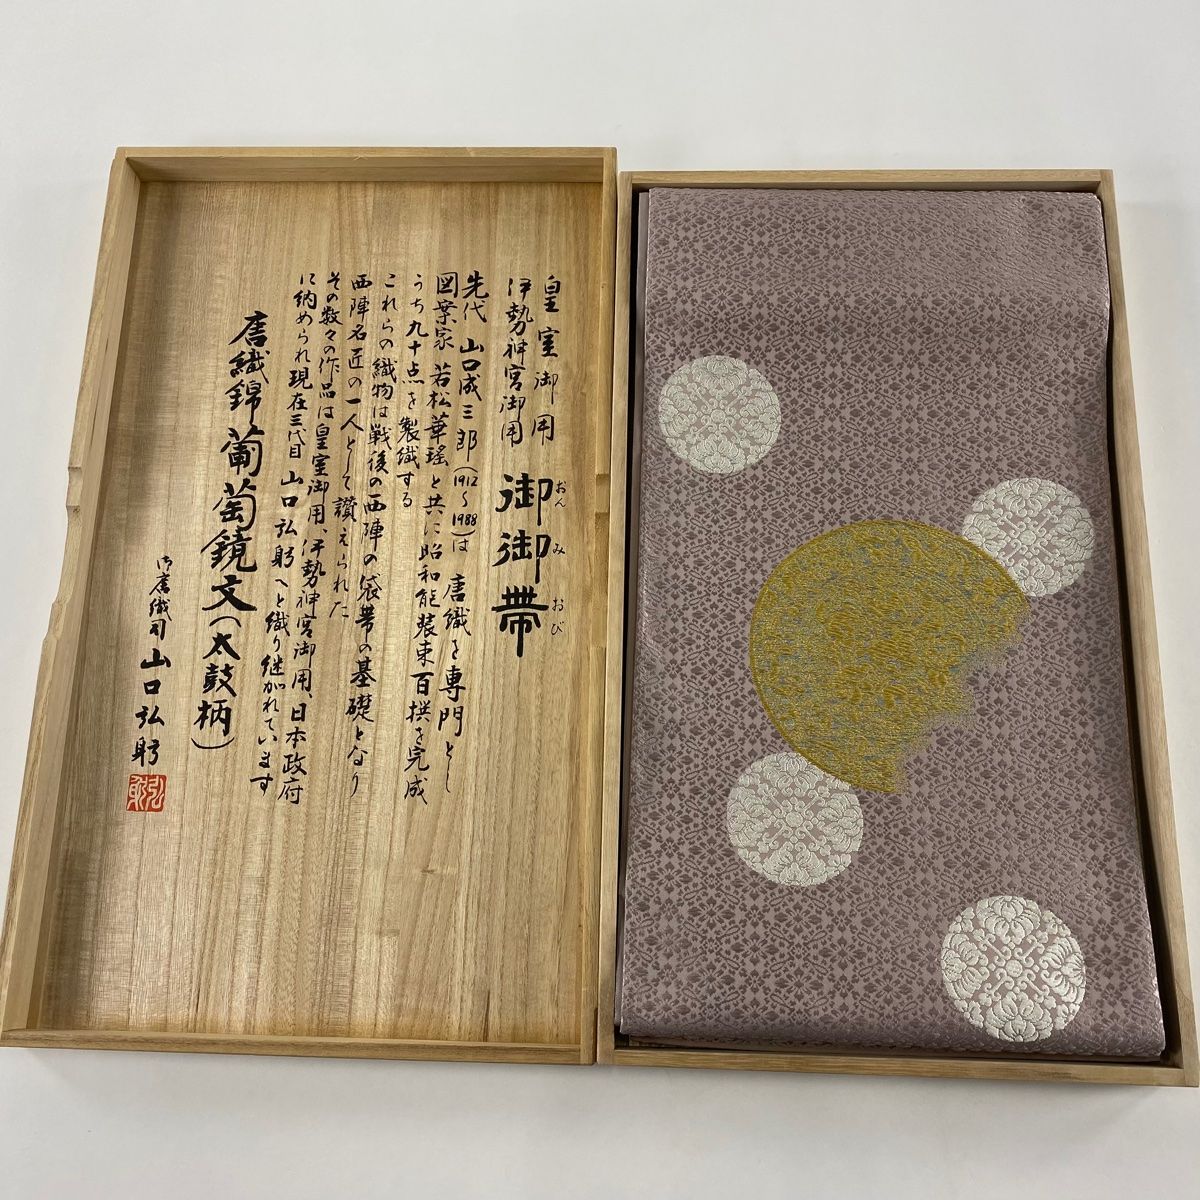 皇室御用
伊勢神宮御用
御御帯
おんみおび
先代 山口成三郎(1912～1988)は 唐織を専門とし
図案家 若松華瑶と共に昭和能装束百撰を完成
うち九十点を製織する
これらの織物は戦後の西陣の袋帯の基礎となり
西陣名匠の一人として讃えられた
その数々の作品は皇室御用、伊勢神宮御用、日本政府
に納められ現在三代目 山口弘躬へと織り継がれています
唐織錦葡萄鏡文(太鼓柄)
御唐織司 山口弘躬
弘躬